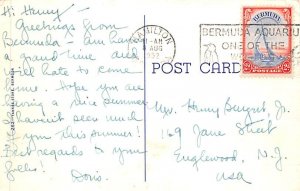 Hi Henry –
Greetings from
Bermuda – Am having
a grand time and
will hate to come
home. Hope you are
having a nice summer
Haven't seen much
of you this summer!
Best regards to your
folks!
Doris.
HAMILTON
AUG
1952
BERMUDA AQUARIU
ONE OF THE
BERMUDA
POSTAGE
POST CARD
Mr. Henry
169 Jane Street
Englewood, N.J.
USA